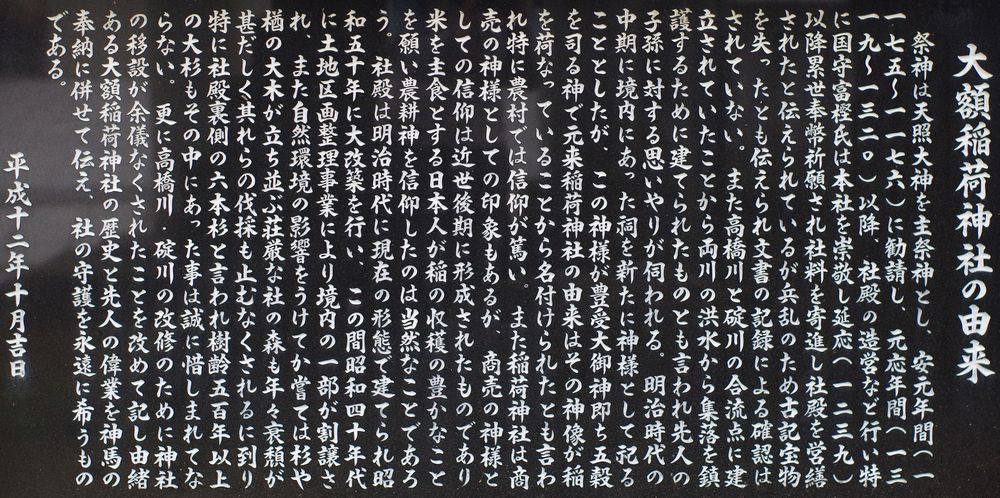 大額稲荷神社の由来
祭神は天照大神を主祭神とし、　安元年間（一
一七五〜一一七六）に勧請し、元応年間（一三
一九〜一三二〇）以降、社殿の造営など行い特
に国守富樫氏は本社を崇敬し延応（一二三九）
以降累世奉幣祈願され社料を寄進し社殿を営繕
されたと伝えられているが兵乱のため古記宝物
を失ったとも伝えられ文書の記録による確認は
されていない。　また高橋川と碇川の合流点に建
立されていたことから両川の洪水から集落を鎮
護するために建てられたものとも言われ先人の
子孫に対する思いやりが伺われる。　明治時代の
中期に境内にあった祠を新たに神様として祀る
こととしたが、　この神様が豊受大御神即ち五穀
を司る神で元来稲荷神社の由来はその神像が稲
を荷なっていることから名付けられたとも言わ
れ特に農村では信仰が篤い。また稲荷神社は商
売の神様としての印象もあるが、　商売の神様と
しての信仰は近世後期に形成されたものであり
米を主食とする日本人が稲の収穫の豊かなこと
を願い農耕神を信仰したのは当然なことであろ
う。　社殿は明治時代に現在の形態で建てられ昭
和五十年に大改築を行い、　この間昭和四十年代
に土地区画整理事業により境内の一部が割譲さ
れ　また自然環境の影響をうけてか嘗ては杉や
楢の大木が立ち並ぶ荘厳な社の森も年々衰頽が
甚だしく其れらの伐採も止むなくされるに到り
特に社殿裏側の六本杉と言われ樹齢五百年以上
の大杉もその中にあった事は誠に惜しまれてな
らない。　更に高橋川・碇川の改修のために神社
の移設が余儀なくされたことを改めて記し由緒
ある大額稲荷神社の歴史と先人の偉業を神馬の
奉納に併せて伝え、社の守護を永遠に希うもの
である。
平成十二年十月吉日